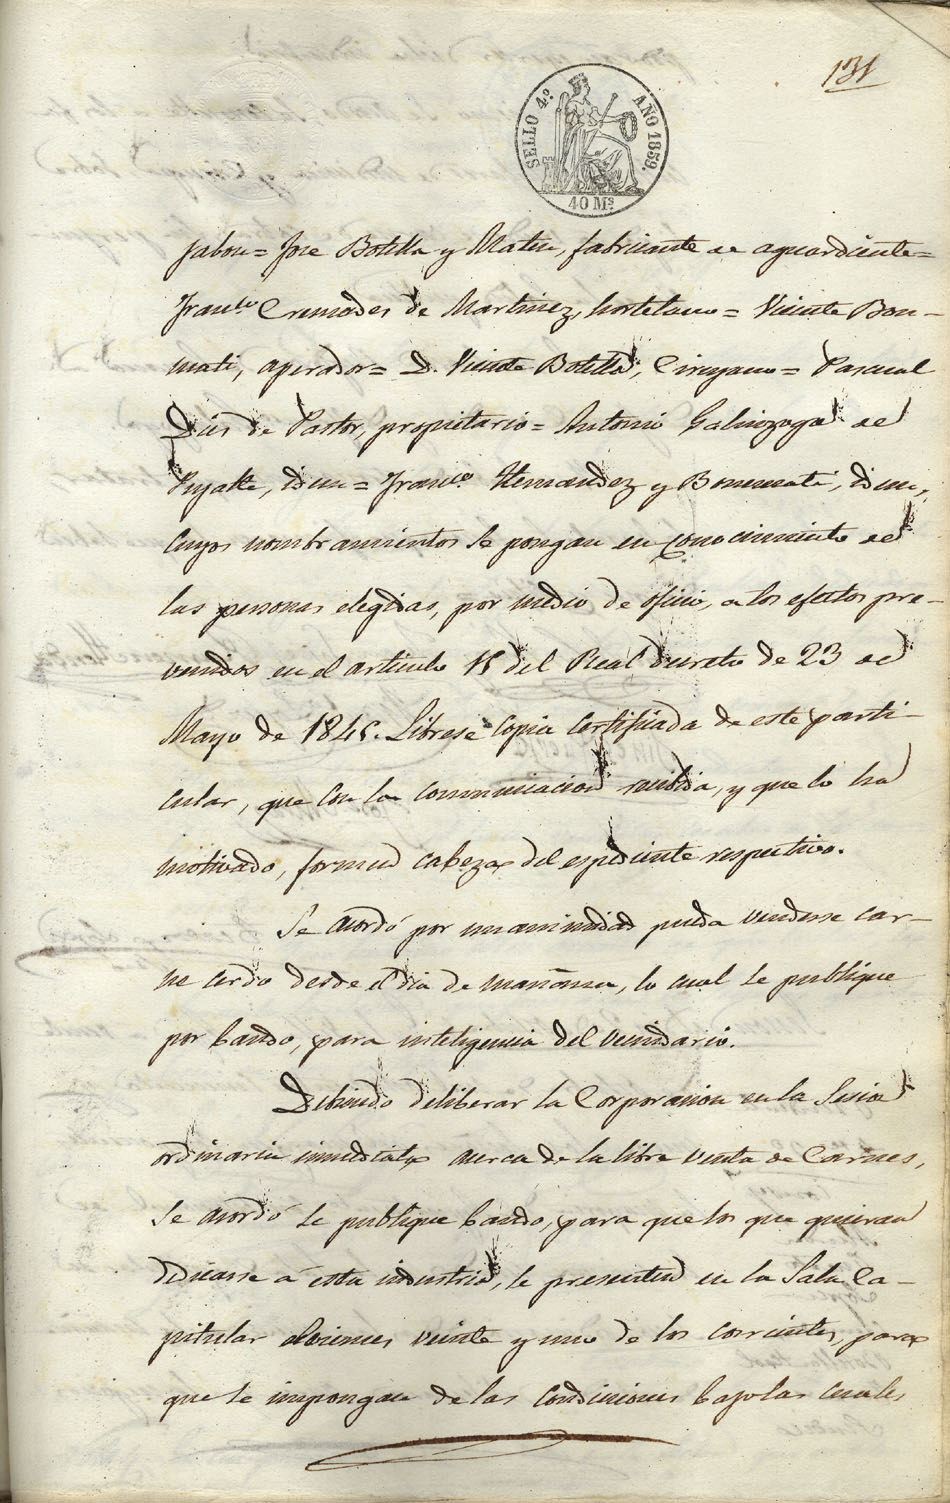 131
SELLO 4.º AÑO 1859.
40 M.s
jabon = Jose Botella y Mateu, fabricante de aguardiente =
Fran.co Cremades de Martinez, hortelano = Vicente Bon-
mati, aperador = D. Vicente Botella, Cirujano = Pascual
Dies de Pastor, propietario = Antonio Galinzoga de
Puyalte, idem = Fran.co Hernandez y Bonmati, idem,
cuyos nombramientos se pongan en conocimiento de
las personas elegidas, por medio de oficio, a los efectos pre-
venidos en el articulo 15 del Real decreto de 23 de
Mayo de 1845. Librese copia certificada de este parti-
cular, que con la comunicacion recibida, y que lo ha
motivado, formen cabeza del espediente respectivo.
Se acordó por unanimidad pueda venderse car-
ne cerdo desde el dia de mañana, lo cual se publique
por bando, para inteligencia del vecindario.
Debiendo deliberar la Corporacion en la Sesion
ordinaria inmediata acerca de la libre venta de Carnes,
se acordó se publique bando, para que los que quieran
dedicarse á esta industria, se presenten en la Sala Ca-
pitular el viernes veinte y uno de los corrientes, para
que se impongan de las condiciones bajo las cuales